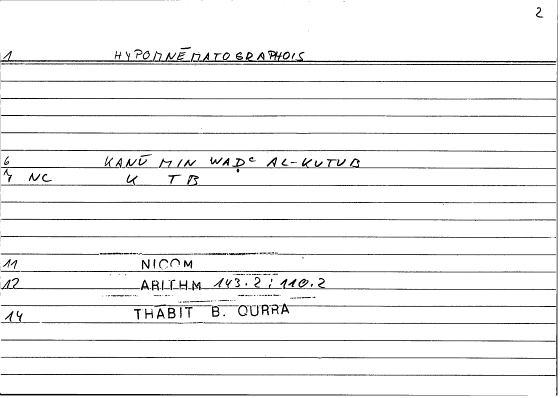 2
1 HYPOMNĒMATOGRAPHOIS
6 KANŪ MIN WAḌᶜ AL-KUTUB
7 NC K T B
11 NICOM
12 ARITHM 143.2 ; 110.2
14 THABIT B. QURRA